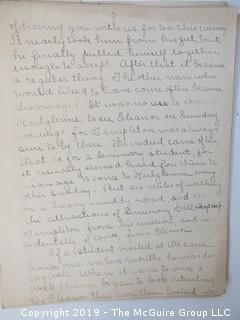 of having you with us for tea this evening
It nearly took him from his feet but
he finally pulled himself together
enough to accept. After that it became
a regular thing. The other men who
would liked to have come often became
discouraged. It was no use to come to
to see Eleanor on Sunday
evenings for Templeton was always
sure to be there. He indeed came often
that is for a Seminary student, for
it usually seemed hard for them to
manage to come to every
other Sunday. But six miles of walking
in a heavy muddy road, and
the attractions of Seminary Hill
Templeton from the memory and in
cidentally, of course from Eleanor.
If a Student visited at the same
house once in two months he was do-
ing well. When it came to once a
week things began to look interesting
to Eleanor, then more than looked
COPYRIGHT 2019 - The McGuire Group LLC